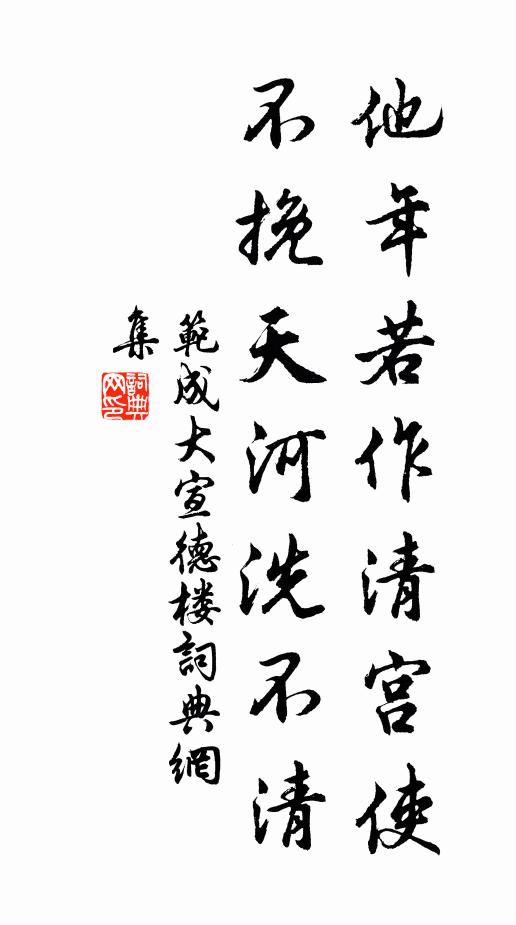 他年若作清宫使
不挽天河洗不清
範成大宣德楼詞典網
集
詞典
网印